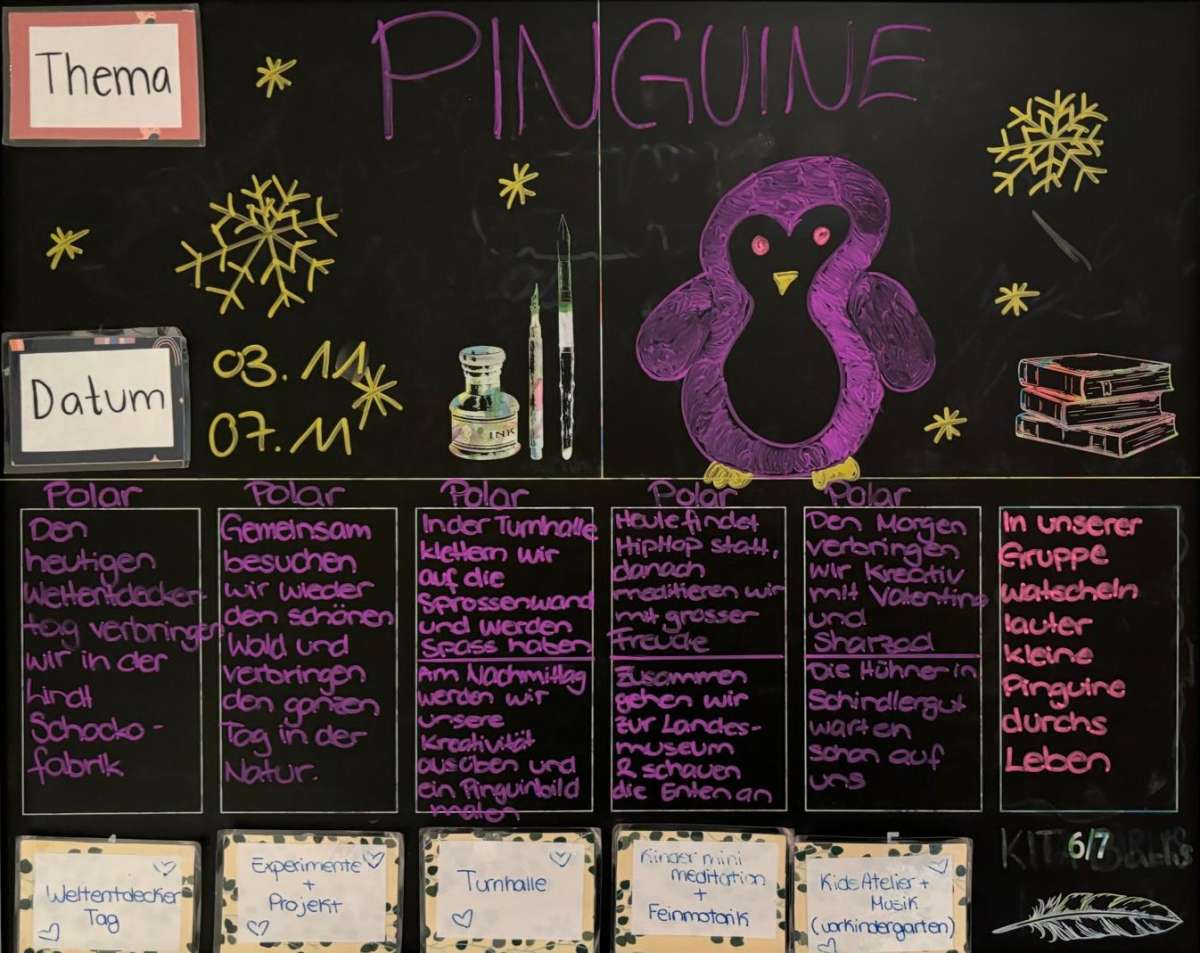 Thema
PINGUINE
Datum
03.11
07.11
INK
Polar
Den
heutigen
Weltentdecker-
tag verbringen
wir in der
Lindt
Schocko-
fabrik
Polar
Gemeinsam
besuchen
wir wieder
den schönen
Wald und
verbringen
den ganzen
Tag in der
Natur.
Polar
In der Turnhalle
klettern wir
auf die
Sprossenwand
und werden
Spass haben
Am Nachmittag
werden wir
unsere
Kreativität
ausüben und
ein Pinguinbild
malen
Polar
Heute findet
HipHop statt,
danach
meditieren wir
mit grosser
Freude
Zusammen
gehen wir
zur Landes-
museum
& schauen
die Enten an
Polar
Den Morgen
verbringen
wir Kreativ
mit Valentino
und
Sharzad
Die Hühner in
Schindlergut
warten
schon auf
uns
In unserer
Gruppe
watscheln
lauter
kleine
Pinguine
durchs
Leben
Weltentdecker
Tag
Experimente
+
Projekt
Turnhalle
Kinder mini
meditation
+
Feinmotorik
Kids Atelier +
Musik
(vorkindergarten)
6/7